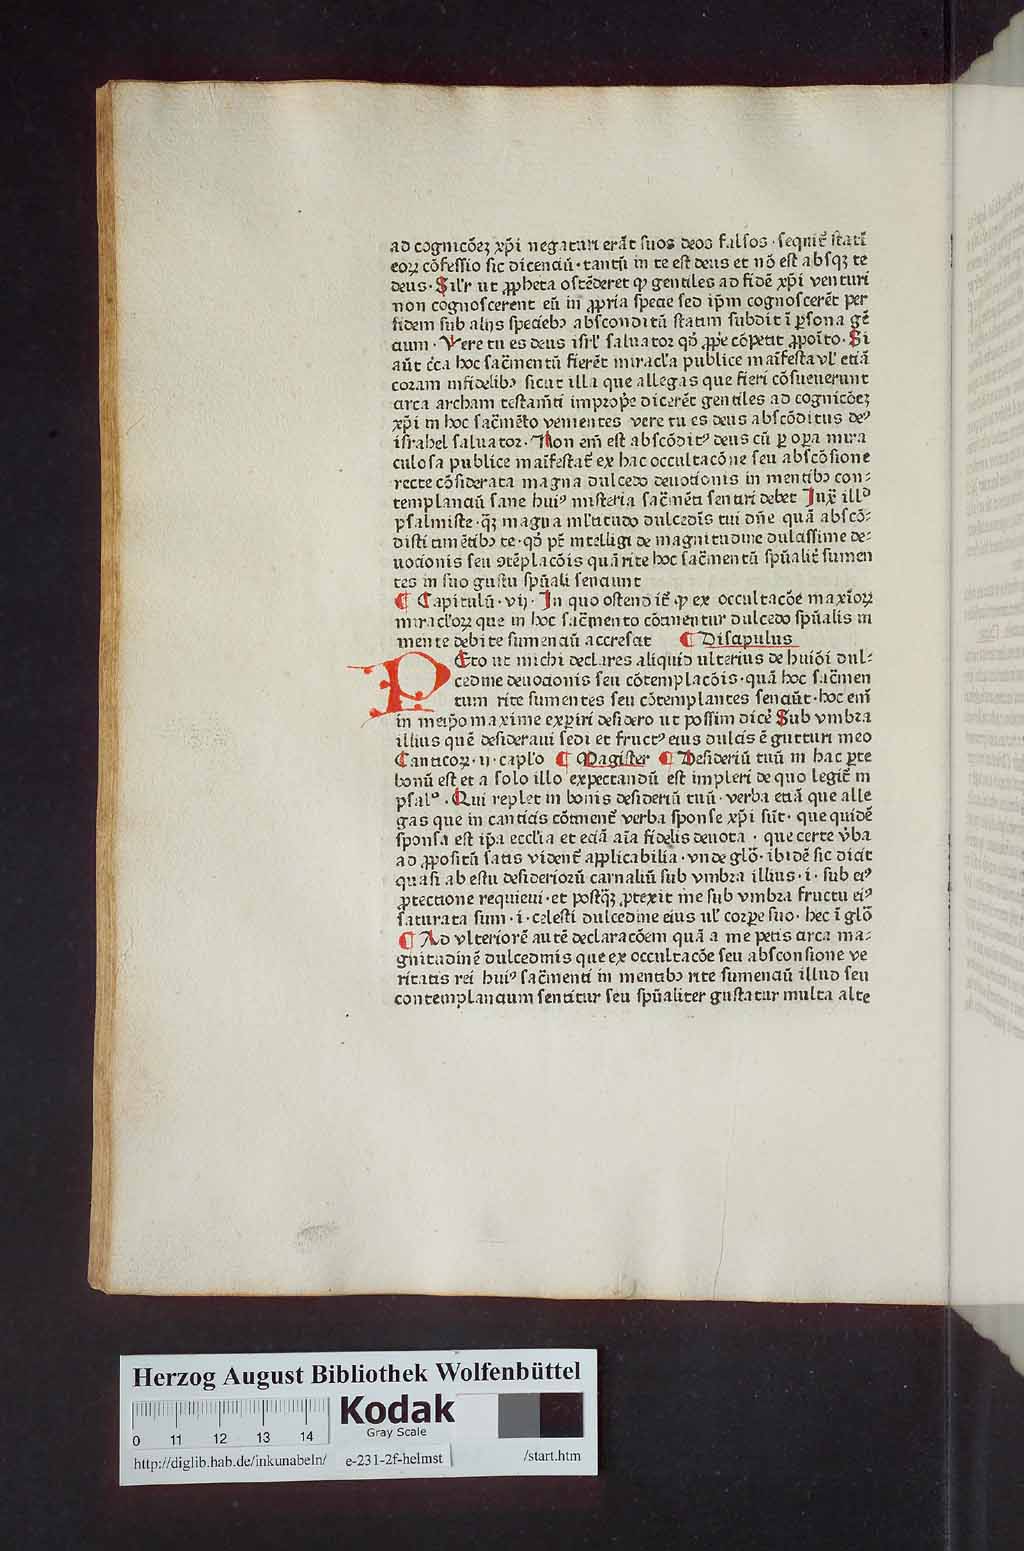 ad cognicōeꝫ xp̄i negaturi erāt suos deos falsos · sequit̄ statī
eoꝝ cōfessio sic dicenciū · tantū in te est deus et nō est absqꝫ te
deus · Sil'r ut ꝓpheta ostēderet ꝙ gentiles ad fidē xp̄i venturi
non cognoscerent eū in ꝓpria specie sed ip̄m cognoscerēt per
fidem sub alijs speciebꝫ absconditū statim subdit ī ꝑsona gē
cium · Vere tu es deus isrl' saluator qd̄ ꝓp̄e cōpetit ꝓpoīto · Si
aūt cc̄a hoc sac̄mentū fierēt miracl'a publice maīfesta vl' etiā
coram infidelibꝫ sicut illa que allegas que fieri cōsueuerunt
circa archam testam̄ti improp̄e dicerēt gentiles ad cognicōeꝫ
xp̄i in hoc sac̄mēto venientes vere tu es deus abscōditus deꝰ
israhel saluator · Non em̄ est abscōditꝰ deus cū ꝑ oꝑa mira
culosa publice maīfestat̄ ex hac occultacōne seu abscōsione
recte cōsiderata magna dulcedo deuotionis in mentibꝫ con-
templanciū sane huiꝰ misteria sac̄mēti sentiri debet Iux̄ illd̄
psalmiste · qꝫ magna ml'titudo dulcedīs tui dn̄e quā abscō-
disti timētibꝫ te · qd̄ pt̄ intelligi de magnitudine dulcissime de-
uocionis seu ꝯtēplacōis quā rite hoc sac̄mentū sp̄ualit̄ sumen
tes in suo gustu sp̄uali senciunt
¶ Capitulū · vij · In quo ostendit̄ ꝙ ex occultacōe maxīoꝝ
miracl'oꝝ que in hoc sac̄mento cōtinentur dulcedo sp̄ualis in
mente debite sumenciū accrescat ¶ Discipulus
PEto ut michi declares aliquid ulterius de huiōi dul-
cedine deuocionis seu cōtemplacōis · quā hoc sac̄men
tum rite sumentes seu cōtemplantes senciūt · hoc enī
in meip̄o maxime exꝑiri desidero ut possim dicē Sub vmbra
illius quē desideraui sedi et fructꝰ eius dulcis ē gutturi meo
Canticoꝝ · ij · capl'o ¶ Magister ¶ Desideriū tuū in hac ꝑte
bonū est et a solo illo expectandū est impleri de quo legit̄ in
psal° · Qui replet in bonis desideriū tuū · verba etiā que alle
gas que in canticis cōtinent̄ verba sponse xp̄i sūt · que quidē
sponsa est ip̄a eccl'ia et eciā aīa fidelis deuota · que certe v̄ba
ad ꝓpositū satis vident̄ applicabilia · vnde glō · ibidē sic dicit
quasi ab estu desideriorū carnaliū sub vmbra illius · i · sub eiꝰ
ꝓtectione requieui · et postqꝫ ꝓtexit me sub vmbra fructu eiꝰ
saturata sum · i · celesti dulcedine eius ul' corꝑe suo · hec ī glō
¶ Ad vlteriorē autē declaracōem quā a me petis circa ma-
gnitudinē dulcedinis que ex occultacōe seu absconsione ve
ritatis rei huiꝰ sac̄menti in mentibꝫ rite sumenciū illud seu
contemplancium sentitur seu sp̄ualiter gustatur multa alte
Herzog August Bibliothek Wolfenbüttel
Kodak
Gray Scale
0 11 12 13 14
http://diglib.hab.de/inkunabeln/ e-231-2f-helmst /start.htm